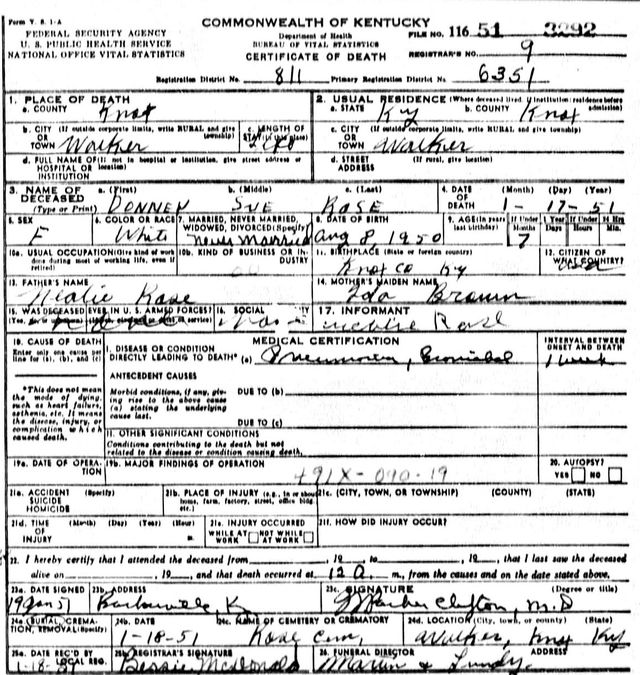 Form V. S. 1-A
COMMONWEALTH OF KENTUCKY
FILE NO. 116 51 3292
FEDERAL SECURITY AGENCY
U. S. PUBLIC HEALTH SERVICE
NATIONAL OFFICE VITAL STATISTICS
Department of Health
BUREAU OF VITAL STATISTICS
CERTIFICATE OF DEATH
REGISTRAR'S NO. 9
Registration District No. 811 Primary Registration District No. 6351
1. PLACE OF DEATH
a. COUNTY Knox
2. USUAL RESIDENCE (Where deceased lived. If institution: residence before admission)
a. STATE Ky b. COUNTY Knox
b. CITY (If outside corporate limits, write RURAL and give township)
OR TOWN Walker
c. LENGTH OF STAY (in this place) Life
c. CITY (If outside corporate limits, write RURAL and give township)
OR TOWN Walker
d. FULL NAME OF (If not in hospital or institution, give street address or location)
HOSPITAL OR INSTITUTION
d. STREET ADDRESS (If rural, give location)
3. NAME OF DECEASED (Type or Print)
a. (First) b. (Middle) c. (Last)
SUE
4. DATE OF DEATH (Month) (Day) (Year)
1-17-51
5. SEX F
6. COLOR OR RACE White
7. MARRIED, NEVER MARRIED, WIDOWED, DIVORCED (Specify) Never Married
8. DATE OF BIRTH Aug 8, 1950
9. AGE (In years last birthday) If Under 1 Year If Under 24 Hrs.
Months Days Hours Min.
10a. USUAL OCCUPATION (Give kind of work done during most of working life, even if retired)
10b. KIND OF BUSINESS OR INDUSTRY
11. BIRTHPLACE (State or foreign country) Knox Co Ky
12. CITIZEN OF WHAT COUNTRY?
13. FATHER'S NAME
14. MOTHER'S MAIDEN NAME Ida Brown
15. WAS DECEASED EVER IN U. S. ARMED FORCES?
16. SOCIAL
17. INFORMANT
18. CAUSE OF DEATH
Enter only one cause per line for (a), (b), and (c)
*This does not mean the mode of dying, such as heart failure, asthenia, etc. It means the disease, injury, or complication which caused death.
MEDICAL CERTIFICATION
INTERVAL BETWEEN ONSET AND DEATH
I. DISEASE OR CONDITION DIRECTLY LEADING TO DEATH* (a) Pneumonia, Bronchial 1 week
ANTECEDENT CAUSES
Morbid conditions, if any, giving rise to the above cause (a) stating the underlying cause last.
DUE TO (b)
DUE TO (c)
II. OTHER SIGNIFICANT CONDITIONS
Conditions contributing to the death but not related to the disease or condition causing death.
19a. DATE OF OPERATION
19b. MAJOR FINDINGS OF OPERATION
491X-090-19
20. AUTOPSY?
YES NO
21a. ACCIDENT SUICIDE HOMICIDE (Specify)
21b. PLACE OF INJURY (e.g., in or about home, farm, factory, street, office bldg. etc.)
21c. (CITY, TOWN, OR TOWNSHIP) (COUNTY) (STATE)
21d. TIME OF INJURY (Month) (Day) (Year) (Hour) m
21e. INJURY OCCURRED
WHILE AT WORK NOT WHILE AT WORK
21f. HOW DID INJURY OCCUR?
22. I hereby certify that I attended the deceased from , 19 to , 19 , that I last saw the deceased
alive on , 19 , and that death occurred at 12 a. m., from the causes and on the date stated above.
23a. DATE SIGNED 19 Jan 51
23b. ADDRESS Barbourville, K
23c. SIGNATURE (Degree or title)
Clifton, M.D
24a. BURIAL, CREMATION, REMOVAL (Specify)
24b. DATE 1-18-51
24c. NAME OF CEMETERY OR CREMATORY Cem.
24d. LOCATION (City, town, or county) (State)
Walker, Knox Ky
25a. DATE REC'D BY LOCAL REG.
25b. REGISTRAR'S SIGNATURE
Bessie McDonald
26. FUNERAL DIRECTOR ADDRESS